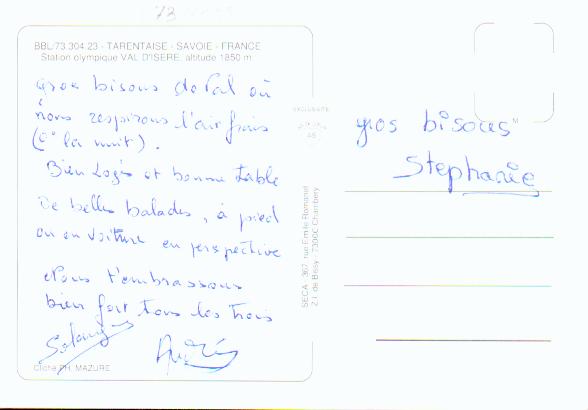 73
BBL/73.304.23 - TARENTAISE - SAVOIE - FRANCE
Station olympique VAL D'ISERE, altitude 1850 m
gros bisous de Val où
nous respirons l'air frais
(0° la nuit).
Bien logés et bonne table
De belles balades, à pied
ou en voiture en perspective
Nous t'embrassons
bien fort tous les trois
Solange
André
Cliché PH. MAZURE
SECA - 367, rue Emile Romanet
Z.I. de Bissy - 7300C Chambery
gros bisous
Stephanie